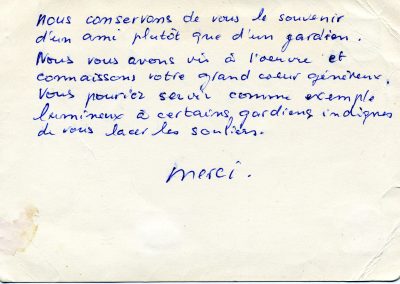 Nous conservons de vous le souvenir
d'un ami plutôt que d'un gardien.
Nous vous avons vis à l'oeuvre et
connaissons votre grand coeur généreux.
Vous pouriez servir comme exemple
lumineux à certains gardiens indignes
de vous lacer les souliers.
Merci.